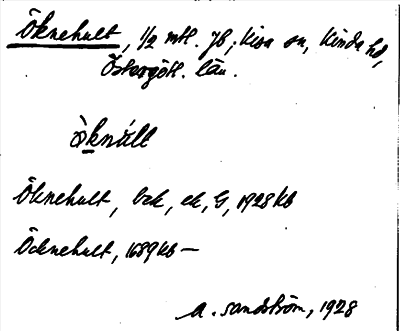 Öknehult, 1/2 mtl. jb, Kisa sn, Kinda hd,
Östergötl. län.
öknúlt
Öknehult, 1928 kb
Öcknehult, 1689 kb —
A. Sandström, 1928